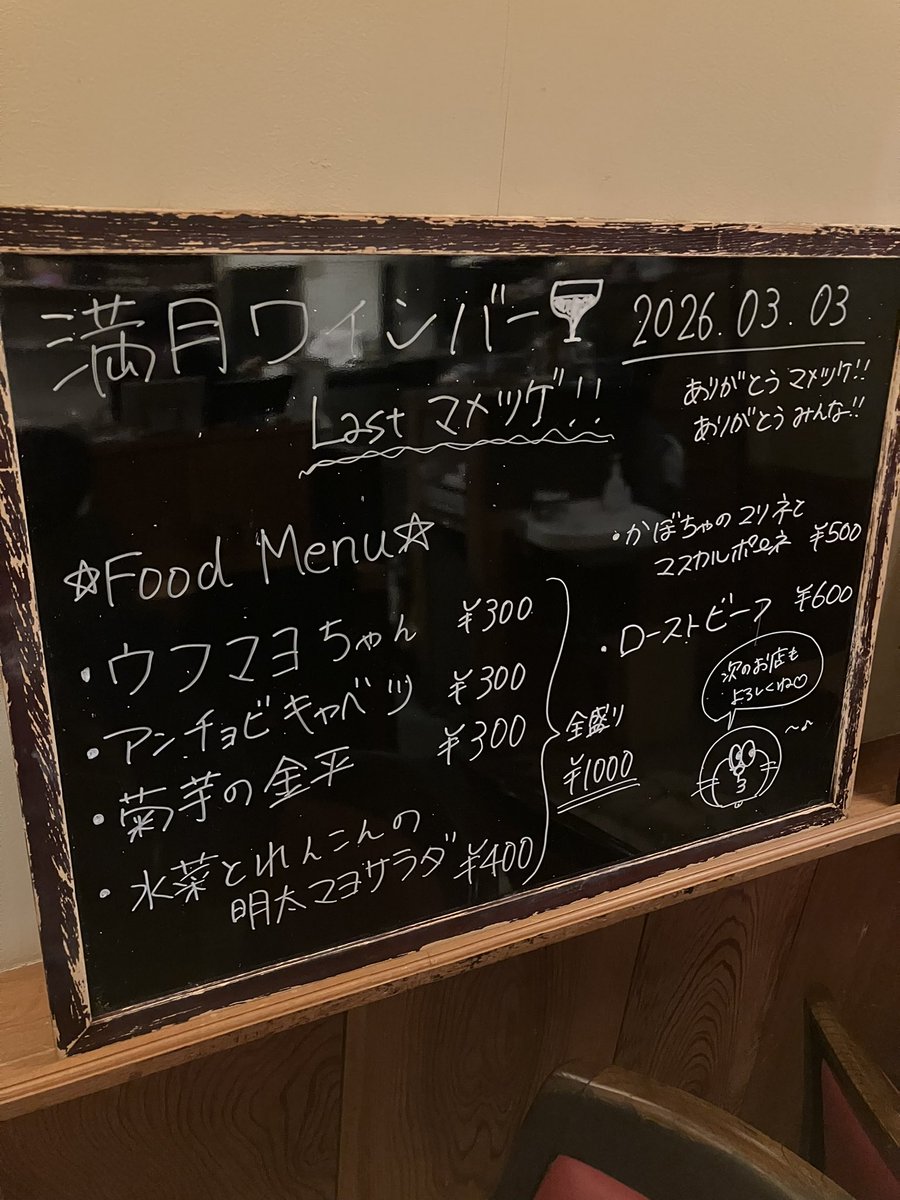 満月ワインバー
2026.03.03
Last マメツゲ!!
ありがとう マメツゲ!!
ありがとう みんな!!
☆Food Menu☆
・ウフマヨちゃん ¥300
・アンチョビキャベツ ¥300
・菊芋の金平 ¥300
・水菜とれんこんの
明太マヨサラダ ¥400
全盛り
¥1000
・かぼちゃのマリネと
マスカルポーネ ¥500
・ローストビーフ ¥600
次のお店も
よろしくね♡
～♪